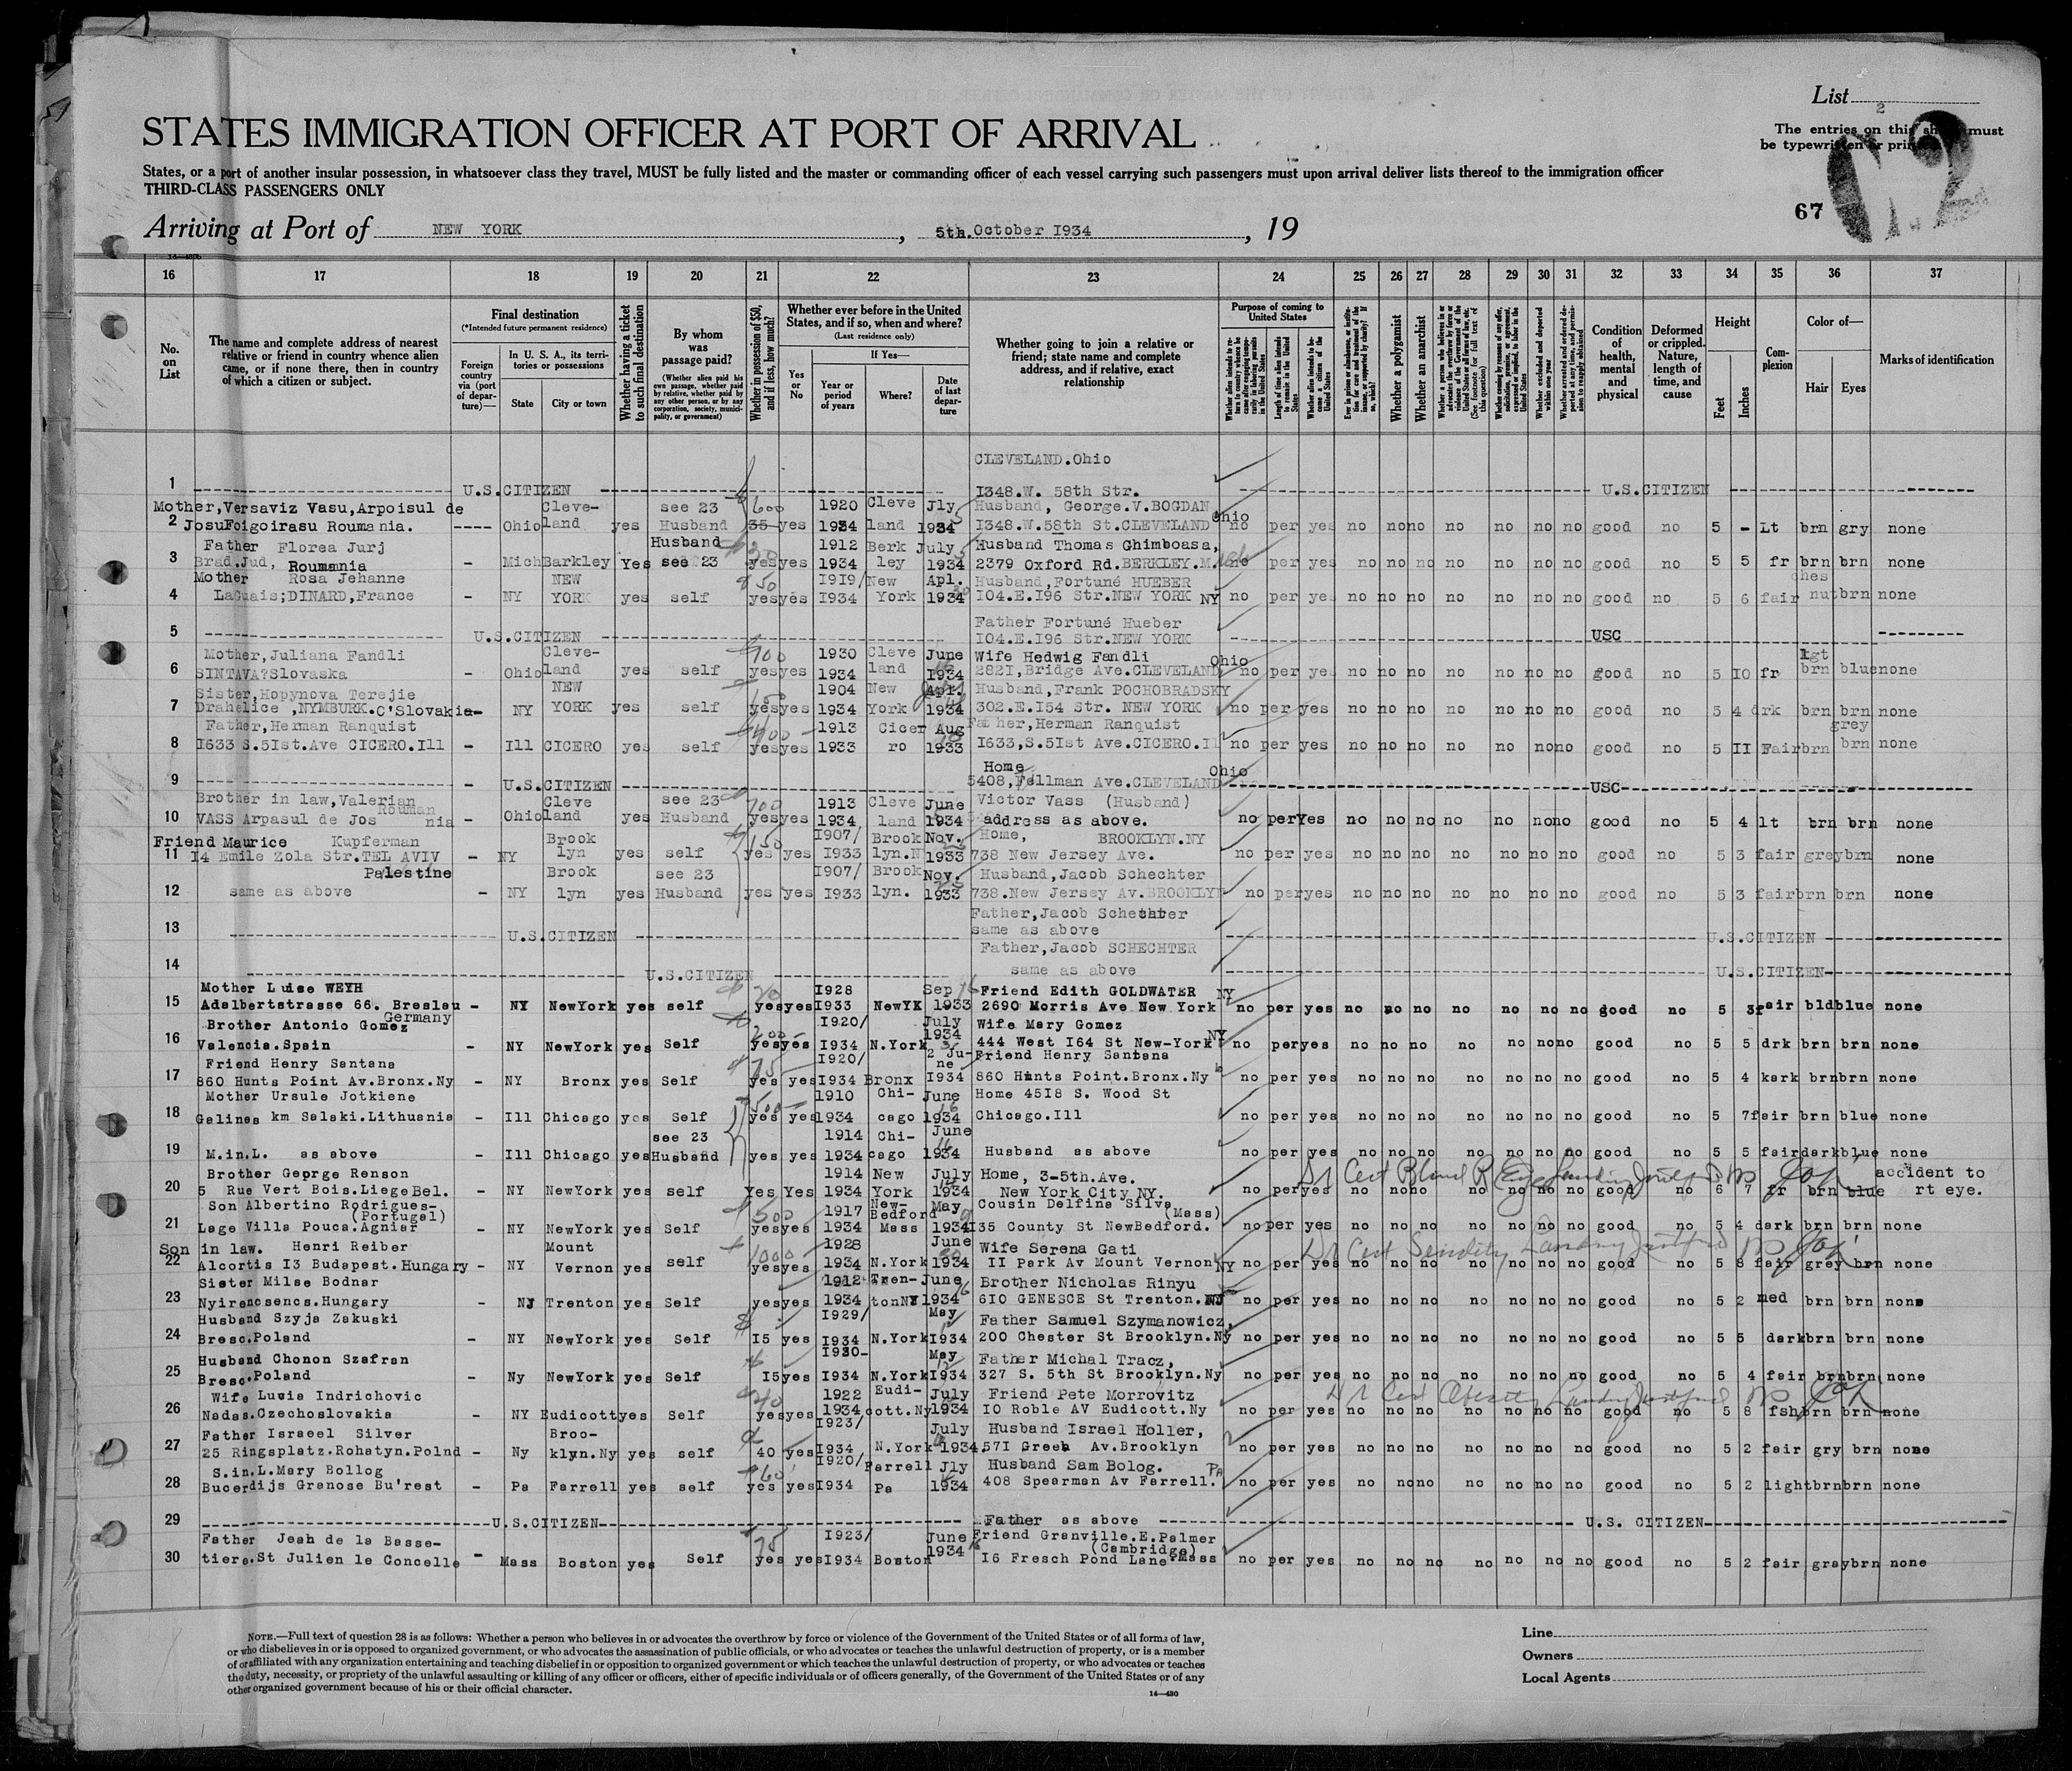 List 2
STATES IMMIGRATION OFFICER AT PORT OF ARRIVAL
The entries on this must
be typewritten or
States, or a port of another insular possession, in whatsoever class they travel, MUST be fully listed and the master or commanding officer of each vessel carrying such passengers must upon arrival deliver lists thereof to the immigration officer
THIRD-CLASS PASSENGERS ONLY
67
Arriving at Port of NEW YORK, 5th.October 1934, 19
16 17 18 19 20 21 22 23 24 25 26 27 28 29 30 31 32 33 34 35 36 37
No. on List
The name and complete address of nearest relative or friend in country whence alien came, or if none there, then in country of which a citizen or subject.
Final destination
(*Intended future permanent residence)
Foreign country via (port of departure)—
In U. S. A., its territories or possessions
State
City or town
Whether having a ticket to such final destination
By whom was passage paid?
(Whether alien paid his own passage, whether paid by relative, whether paid by any other person, or by any corporation, society, municipality, or government)
Whether in possession of $50, and if less, how much?
Whether ever before in the United States, and if so, when and where?
(Last residence only)
Yes or No
If Yes—
Year or period of years
Where?
Date of last departure
Whether going to join a relative or friend; state name and complete address, and if relative, exact relationship
Purpose of coming to United States
Whether a polygamist
Whether an anarchist
Condition of health, mental and physical
Deformed or crippled. Nature, length of time, and cause
Height
Feet
Inches
Complexion
Color of—
Hair
Eyes
Marks of identification
CLEVELAND.Ohio
1 U.S.CITIZEN I348.W. 58th Str. U.S.CITIZEN
Mother,Versaviz Vasu,Arpoisul de Cleve- see 23 600 1920 Cleve Jly Husband, George.V.BOGDAN
2 JosuFoigoirasu Roumania. Ohio land yes Husband 35 yes 1934 land 1934 I348.W.58th St.CLEVELAND Ohio no per yes no no no no no no no good no 5 - Lt brn gry none
Father Florea Jurj Husband 1912 Berk July Husband Thomas Ghimboasa,
3 Brad.Jud, Roumania - Mich Barkley Yes see 23 yes yes 1934 ley 1934 2379 Oxford Rd.BERKLEY.M. no per yes no no no no no no no good no 5 5 fr brn brn none
Mother Rosa Jehanne NEW $50 I9I9/ New Apl. Husband,Fortuné HUEBER ches
4 LaGuais;DINARD,France - NY YORK yes self yes yes I934 York 1934 I04.E.I96 Str.NEW YORK NY no per yes no no no no no no no good no 5 6 fair nut brn none
Father Fortuné Hueber
5 U.S.CITIZEN I04.E.I96 Str.NEW YORK USC
Mother,Juliana Fandli Cleve- 1930 Cleve June Wife Hedwig Fandli lgt
6 SINTAVA?Slovaska - Ohio land yes self yes yes 1934 land I934 282I,Bridge Ave.CLEVELAND Ohio no per yes no no no no no no no good no 5 IO fr brn blue none
Sister,Hopynova Terejie NEW 1904 New Apr. Husband,Frank POCHOBRADSKY
7 Drahelice ,NYMBURK.C'Slovakia- NY YORK yes self yes yes 1934 York 1934 302.E.I54 Str. NEW YORK no per yes no no no no no no no good no 5 4 drk brn brn none
Father,Herman Ranquist 400 1913 Cicer Aug Father,Herman Ranquist grey
8 I633 S.5Ist.Ave CICERO.Ill - Ill CICERO yes self yes yes 1933 ro 1933 I633,S.5Ist Ave.CICERO.Il no per yes no no no no no no no good no 5 II Fair brn brn none
Home
9 - U.S.CITIZEN 5408,Tellman Ave.CLEVELAND Ohio USC
Brother in law,Valerian Cleve see 23 700 1913 Cleve June Victor Vass (Husband)
10 VASS Arpasul de Jos Rouman nia - Ohio land yes Husband yes yes 1934 land 1934 address as above. no per Yes no no no no no no no good no 5 4 lt brn brn none
Friend Maurice Kupferman Brook 150 I907/ Brook Nov. Home, BROOKLYN.NY
11 I4 Emile Zola Str.TEL AVIV - NY lyn yes self yes yes I933 lyn.N 1933 738 New Jersey Ave. no per yes no no no no no no no good no 5 3 fair grey brn none
Palestine Brook see 23 I907/ Brook Nov. Husband,Jacob Schechter
12 same as above - NY lyn yes Husband yes yes I933 lyn. 1933 738.New Jersey Av.BROOKLY no per yes no no no no no no no good no 5 3 fair brn brn none
Father,Jacob Schechter
13 U.S.CITIZEN same as above U.S.CITIZEN
Father,Jacob SCHECHTER
14 U.S.CITIZEN same as above U.S.CITIZEN
Mother Luise WEYH I928 Sep 16 Friend Edith GOLDWATER NY
15 Adalbertstrasse 66. Breslau - NY NewYork yes self yes yes I933 NewYK 1933 2690 Morris Ave New York no per yes no no no no no no no good no 5 3 fair bld blue none
Germany
Brother Antonio Gomez 200 I920/ July Wife Mary Gomez
16 Valencia.Spain - NY NewYork yes Self yes yes I934 N.York 1934 444 West I64 St New-York NY no per yes no no no no no no no good no 5 5 drk brn brn none
Friend Henry Santana 75 I920/ 2 June Friend Henry Santana
17 860 Hunts Point Av.Bronx.Ny - NY Bronx yes Self yes yes I934 Bronx I934 860 Hunts Point.Bronx.Ny no per yes no no no no no no no good no 5 4 kark brn brn none
Mother Ursule Jotkiene 500 1910 Chi- June Home 45I8 S. Wood St
18 Galines km Salaki.Lithuania - Ill Chicago yes Self yes yes 1934 cago 1934 Chicago.Ill no per yes no no no no no no no good no 5 7 fair brn blue none
see 23 1914 Chi- June
19 M.in.L. as above - Ill Chicago yes Husband yes yes 1934 cago 1934 Husband as above no per yes no no no no no no no good no 5 5 fair dark blue none
Dr Cert Blind R Eye
Brother George Renson 1914 New July Home, 3-5th.Ave. accident to
20 5 Rue Vert Bois.Liege Bel. - NY NewYork yes self Yes Yes 1934 York 1934 New York City NY. no per yes no no no no no no no good no 6 7 fr brn blue rt eye.
Son Albertino Rodrigues- (Portugal) 500 1917 New-Bedford May Cousin Delfina Silva (Mass)
21 Lage Villa Pouca.Agniar - NY NewYork yes Self yes yes 1934 Mass 1934 I35 County St NewBedford. no per yes no no no no no no no good no 5 4 dark brn brn none
Dr Cert Senility
Son in law. Henri Reiber Mount 1000 1928 June Wife Serena Gati
22 Alcortis I3 Budapest.Hungary - NY Vernon yes self yes yes 1934 N.York 1934 II Park Av Mount Vernon NY no per yes no no no no no no no good no 5 8 fair grey brn none
Sister Milse Bodnar 1912 Tren- June Brother Nicholas Rinyu
23 Nyirencsencs.Hungary - NJ Trenton yes Self yes yes 1934 tonNJ 1934 6I0 GENESCE St Trenton.NJ no per yes no no no no no no no good no 5 2 med brn brn none
Husband Szyja Zakuski I929/ May Father Samuel Szymanowicz,
24 Bresc.Poland - NY NewYork yes Self I5 yes I934 N.York I934 200 Chester St Brooklyn.Ny no per yes no no no no no no no good no 5 5 dark brn brn none
Husband Chonon Szafran I930- May Father Michal Tracz,
25 Bresc.Poland - Ny NewYork yes Self I5 yes I934 N.York I934 327 S. 5th St Brooklyn.Ny no per yes no no no no no no no good no 5 4 fair brn brn none
Dr Cert Obesity
Wife Luvia Indrichovic 40 1922 Eudi- July Friend Pete Morrovitz
26 Nadas.Czechoslovakia - NY Eudicott yes Self yes yes 1934 cott.Ny 1934 IO Roble AV Eudicott.Ny no per yes no no no no no no no good no 5 8 fsh brn brn none
Father Israeel Silver Broo- I923/ July Husband Israel Holler,
27 25 Ringsplatz.Rohatyn.Polnd - Ny klyn.Ny yes self 40 yes I934 N.York 1934. 57I Green Av.Brooklyn no per yes no no no no no no no good no 5 2 fair gry brn none
S.in.L.Mary Bollog 60 I920/ Farrell Jly Husband Sam Bolog. Pa
28 Bucerdija Granose Bu'rest - Pa Farrell yes self yes yes I934 Pa 1934 408 Spearman Av Farrell. no per yes no no no no no no no good no 5 2 light brn brn none
29 U.S.CITIZEN Father as above U.S. CITIZEN
Father Jeah de la Basse- 75 I923/ June Friend Granville.E.Palmer (Cambridge)
30 tiere.St Julien le Concelle - Mass Boston yes Self yes yes I934 Boston 1934 I6 Fresch Pond Lane.Mass no per yes no no no no no no no good no 5 2 fair gray brn none
NOTE.—Full text of question 28 is as follows: Whether a person who believes in or advocates the overthrow by force or violence of the Government of the United States or of all forms of law,
or who disbelieves in or is opposed to organized government, or who advocates the assassination of public officials, or who advocates or teaches the unlawful destruction of property, or is a member
of or affiliated with any organization entertaining and teaching disbelief in or opposition to organized government or which teaches the unlawful destruction of property, or who advocates or teaches
the duty, necessity, or propriety of the unlawful assaulting or killing of any officer or officers, either of specific individuals or of officers generally, of the Government of the United States or of any
other organized government because of his or their official character.
14—430
Line
Owners
Local Agents